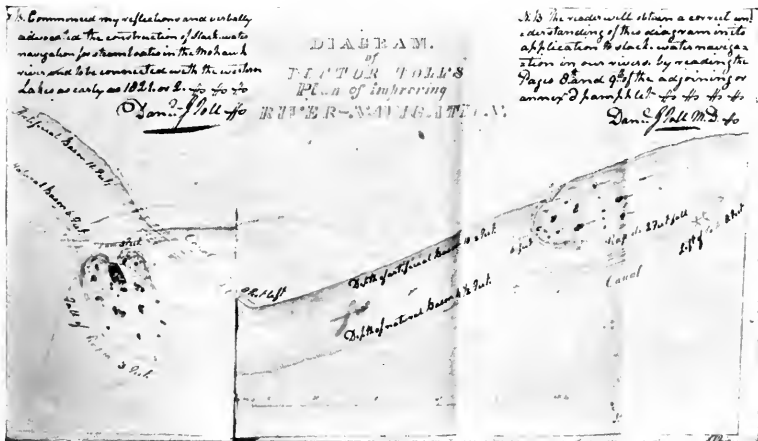 N.B. Commenced my reflections and verbally
advocated the construction of slack-water
navigation for steamboats in the Mohawk
river and to be connected with the western
Lakes as early as 1821. or 2.
Danl. J Toll
DIAGRAM.
of
DOCTOR TOLL'S
Plan of improving
RIVER-NAVIGATION.
N.B. The reader will obtain a correct un-
derstanding of this diagram in its
application to slack-water naviga-
tion in our rivers. by reading the
Pages 8th and 9th of the adjoining or
annex'd pamphlet
Danl. J Toll M.D.
Artificial Bason 12 Feet
Natural Bason 6 Feet
Dam 3 Feet
Canal
Fall of
3 Feet
Feet Lift
Depth of artificial Bason 10 Feet.
Depth of natural Bason 4 ½ Feet.
Feet
Rapids 2 Feet fall
Canal
Lift of Feet